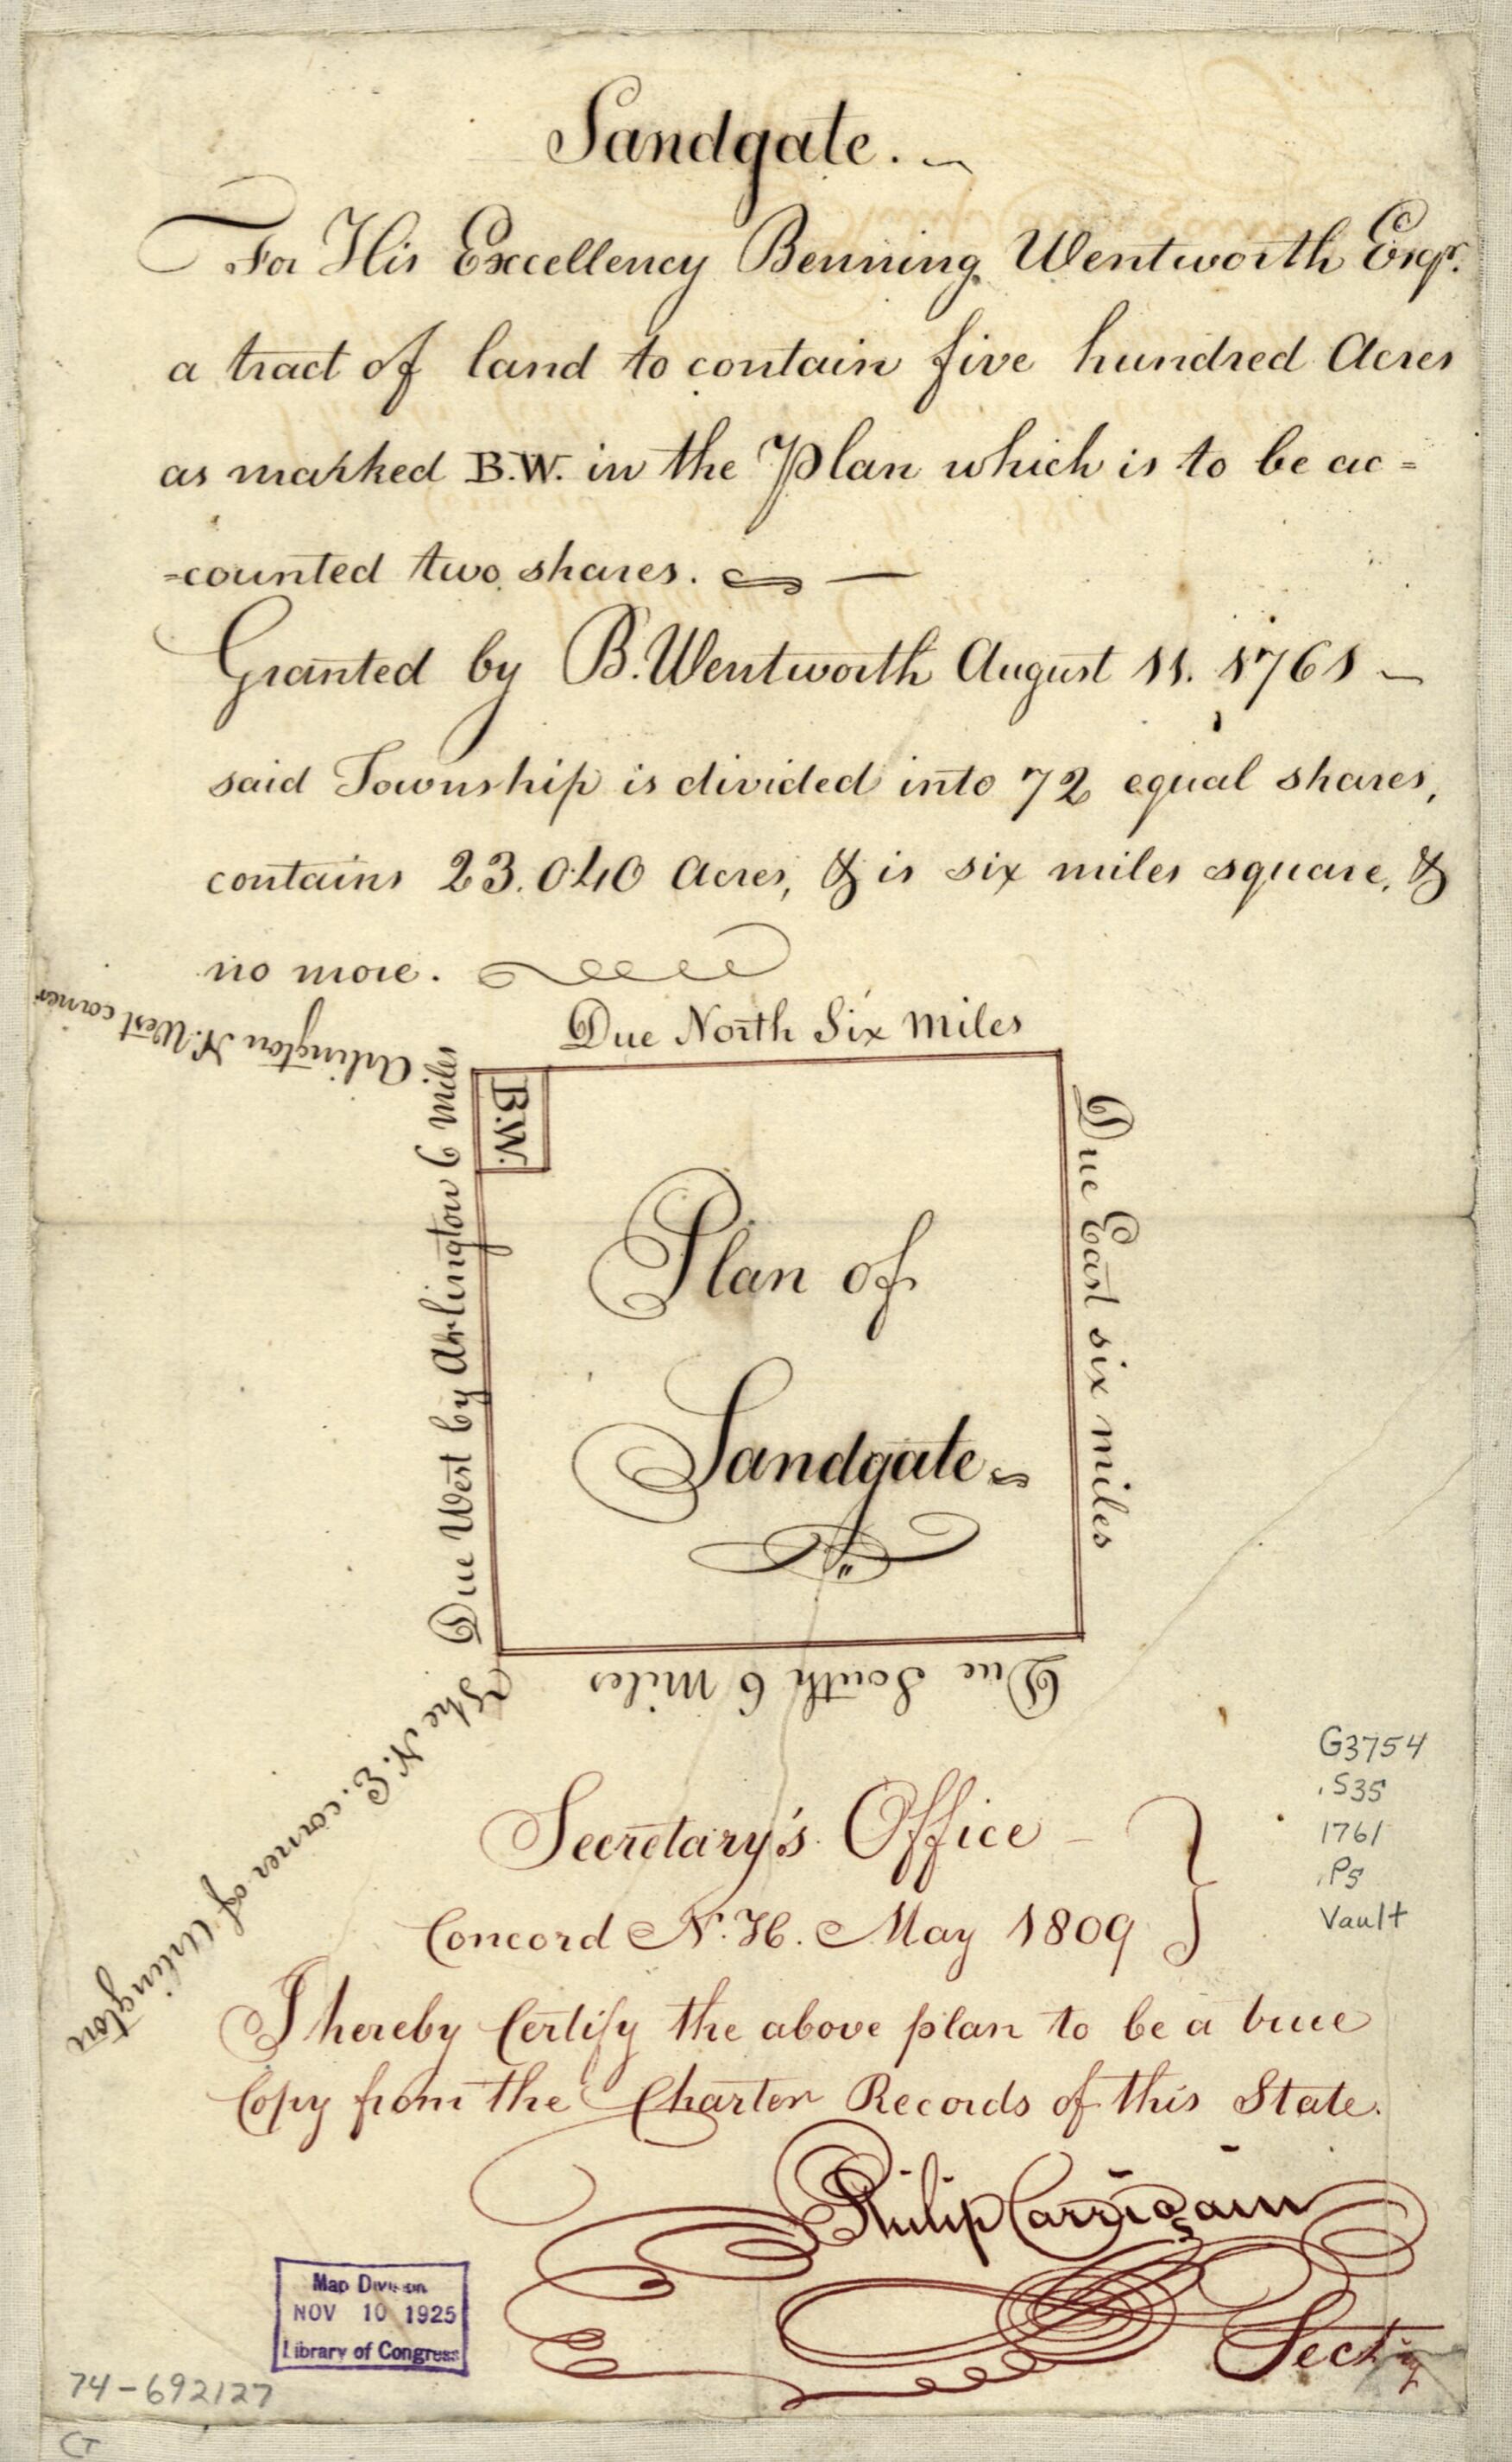 Sandgate.
For His Excellency Benning Wentworth Esqr.
a tract of land to contain five hundred Acres
as marked B.W. in the Plan which is to be ac=
=counted two shares.
Granted by B. Wentworth August 11. 1761
said Township is divided into 72 equal shares,
contains 23.040 Acres, & is six miles square, &
no more.
Arlington N. West corner
Due North Six Miles
Due West by Arlington 6 Miles
B.W.
Due East six miles
Plan of
Sandgate
Due South 6 Miles
The N. E. corner of Arlington
G3754
.S35
1761
.P5
Vault
Secretary's Office
Concord N. H. May 1809
I hereby Certify the above plan to be a true
Copy from the Charter Records of this State.
Philip Carrigain
Secty
Map Division
NOV 10 1925
Library of Congress
74-692127
G